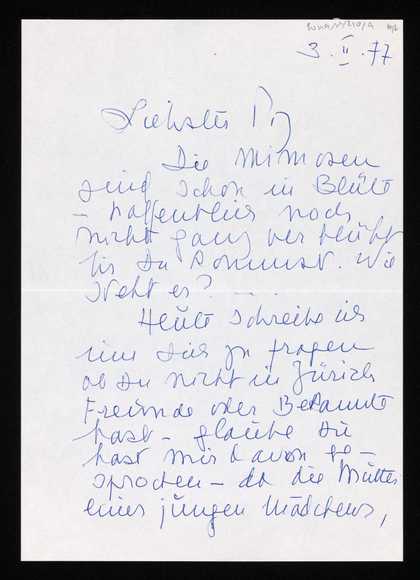 3. II. 77
Liebster
Die Mimosen
sind schon in Blüte
– hoffentlich noch
nicht ganz verblüht
bis Du kommst. Wie
steht es?
Heute schreibe ich
um Dich zu fragen
ob Du nicht in Zürich
Freunde oder Bekannte
hast – glaube Du
hast mir davon ge-
sprochen – da die Mutter
eines jungen Mädchens,